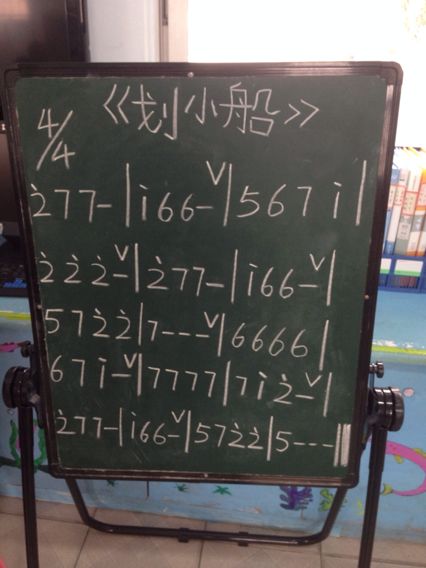 《划小船》
4/4
2̇77-|1̇66-ⱽ|5671̇|
2̇2̇2̇-ⱽ|2̇77-|1̇66-ⱽ|
572̇2̇|7---ⱽ|6666|
671̇-ⱽ|7777|71̇2̇-ⱽ|
2̇77-|1̇66-ⱽ|572̇2̇|5---‖